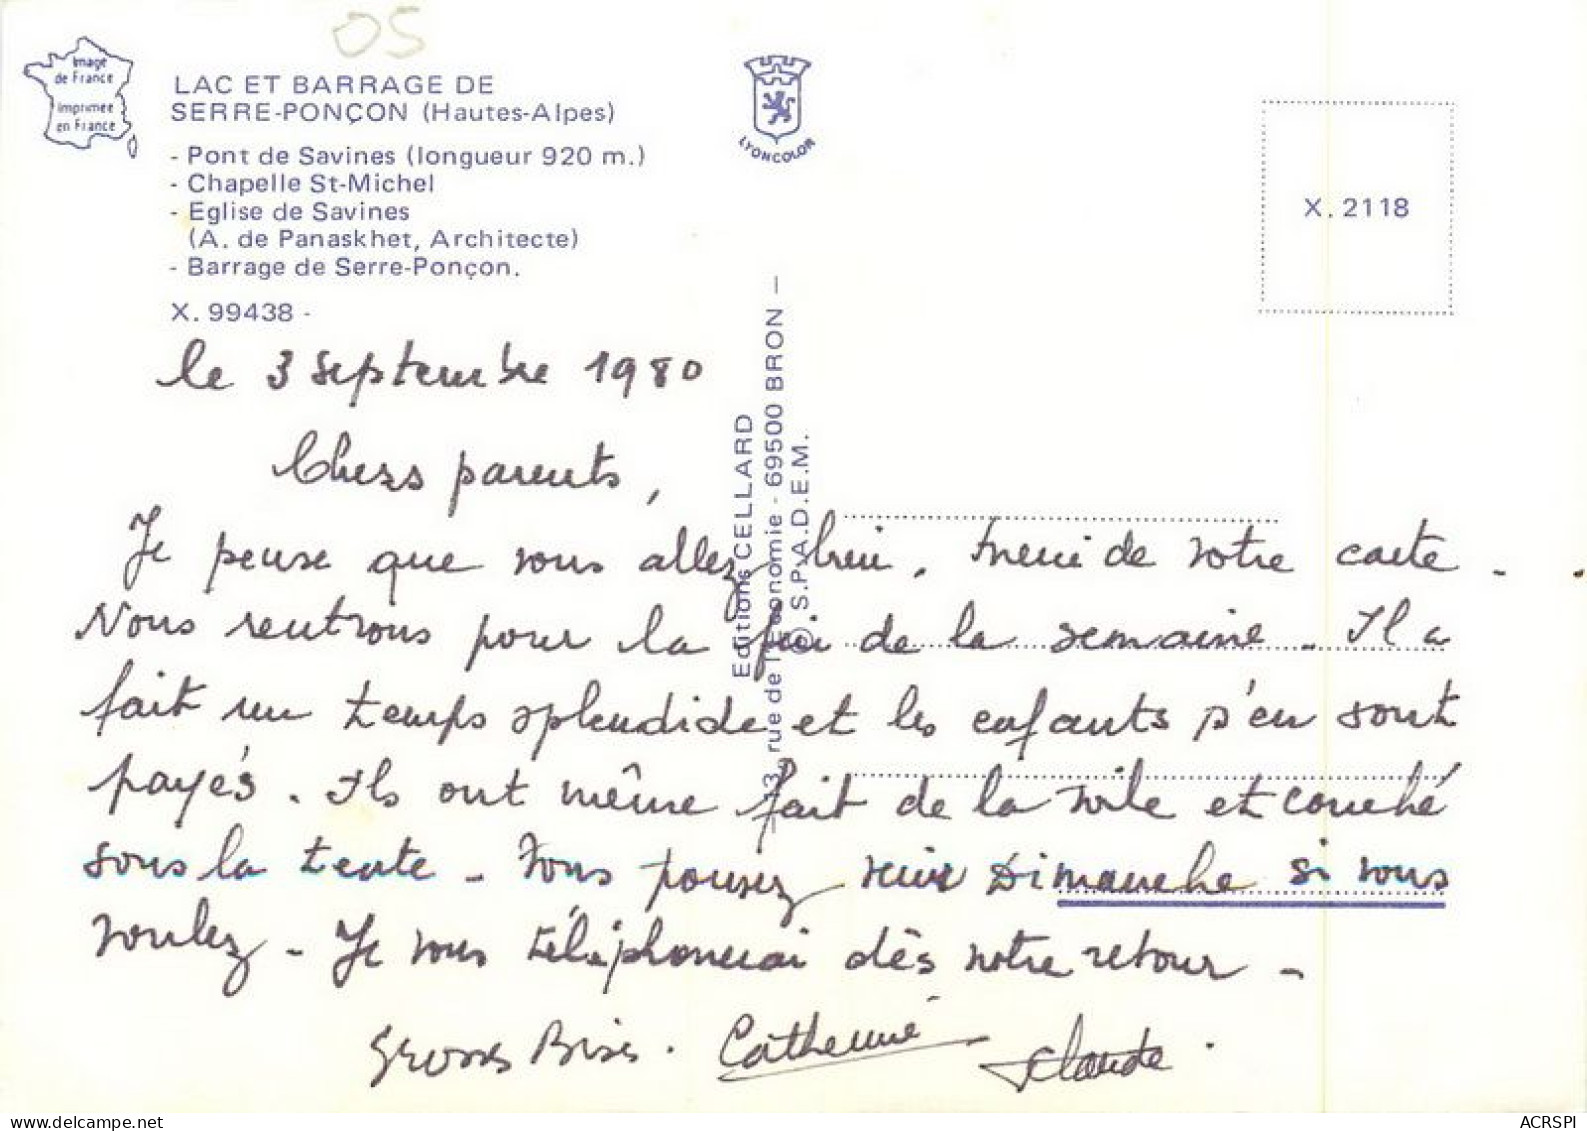 05
Image
de France
Imprimée
en France
LAC ET BARRAGE DE
SERRE-PONÇON (Hautes-Alpes)
- Pont de Savines (longueur 920 m.)
- Chapelle St-Michel
- Eglise de Savines
(A. de Panaskhet, Architecte)
- Barrage de Serre-Ponçon.
X. 99438 -
LYONCOLOR
X. 2118
Editions CELLARD
33, rue de l'Economie - 69500 BRON —
© S.P.A.D.E.M.
le 3 Septembre 1980
Chers parents,
Je pense que vous allez bien. Merci de votre carte.
Nous rentrons pour la fin de la semaine. Il a
fait un temps splendide et les enfants s'en sont
payés. Ils ont même fait de la voile et couché
sous la tente - Vous pouvez venir Dimanche si vous
voulez - Je vous téléphonerai dès notre retour -
Grosses Bises. Catherine - Claude.
delcampe.net
ACRSPI